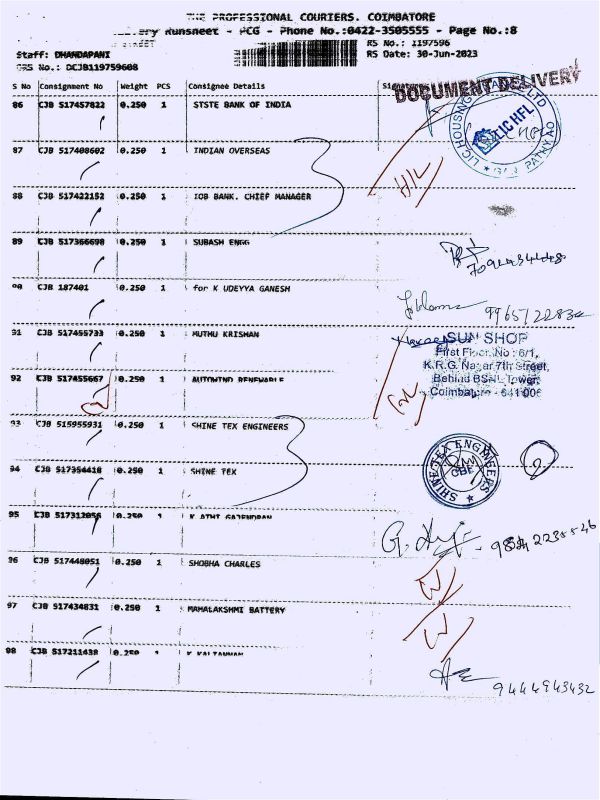 THE PROFESSIONAL COURIERS. COIMBATORE
Runsheet - PCG - Phone No.:0422-3505555 - Page No.:8
RS No.: 1197596
Staff: DHANDAPANI RS Date: 30-Jun-2023
DRS No.: DCJB119759608
S No Consignment No Weight PCS Consignee Details
DOCUMENT DELIVERY
86 CJB 517457822 0.250 1 STSTE BANK OF INDIA
LIC HOUSING LTD
LIC HFL
87 CJB 517408602 0.250 1 INDIAN OVERSEAS
88 CJB 517422152 0.250 1 IOB BANK. CHIEF MANAGER
89 CJB 517366698 0.250 1 SUBASH ENGG
90 CJB 187401 0.250 1 for K UDEYYA GANESH
91 CJB 517455733 0.250 1 MUTHU KRISHAN
SUN SHOP
First Floor, No : 6/1,
K.R.G. Nagar 7th Street,
92 CJB 517455667 0.250 1 AUTOWIND RENEWABLE
Behind BSNL Tower,
Coimbatore - 641 006
93 CJB 515955931 0.250 1 SHINE TEX ENGINEERS
SHINE TEX ENGINEERS
CBE
94 CJB 517354418 0.250 1 SHINE TEX
2
95 CJB 517312056 0.250 1 K ATHI GAJENDRAN
96 CJB 517448051 0.250 1 SHOBHA CHARLES
97 CJB 517434831 0.250 1 MAHALAKSHMI BATTERY
98 CJB 517211438 0.250 1
9444943432